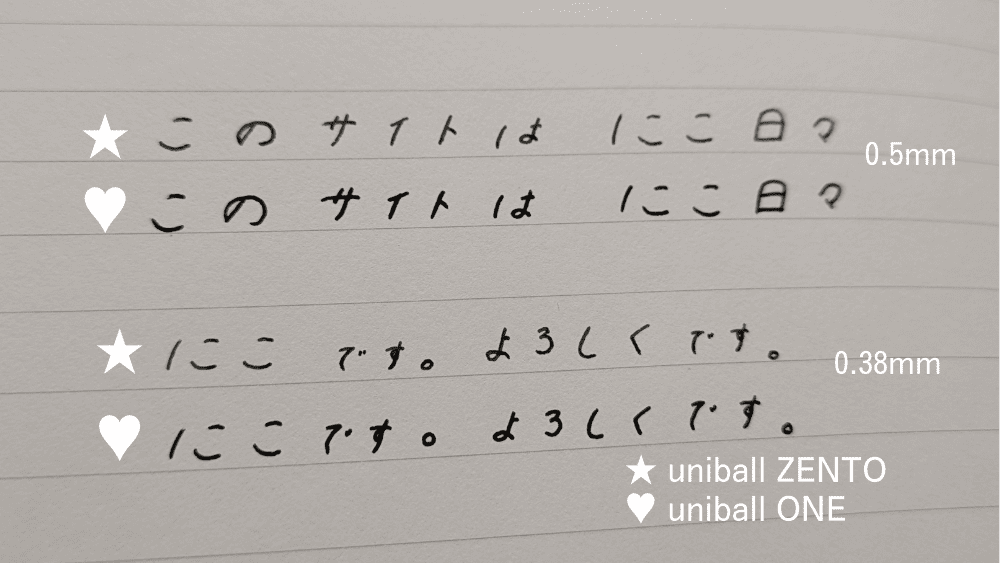 ★ このサイトは にここ日々 0.5mm
♥ このサイトは にここ日々
★ にここ です。よろしくです。 0.38mm
♥ にここです。よろしくです。
★ uniball ZENTO
♥ uniball ONE